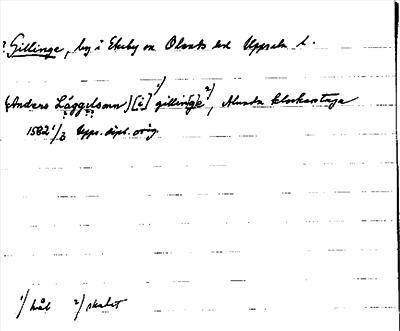 ? Gillinge, by i Ekeby sn Olands hd Uppsala l.
(Anders Läggelsonn) [i]¹⁾ gillinge²⁾, Alunda klockantaga
1562 1/3 Upps. dipl. orig.
1/ hål 2/ skadat